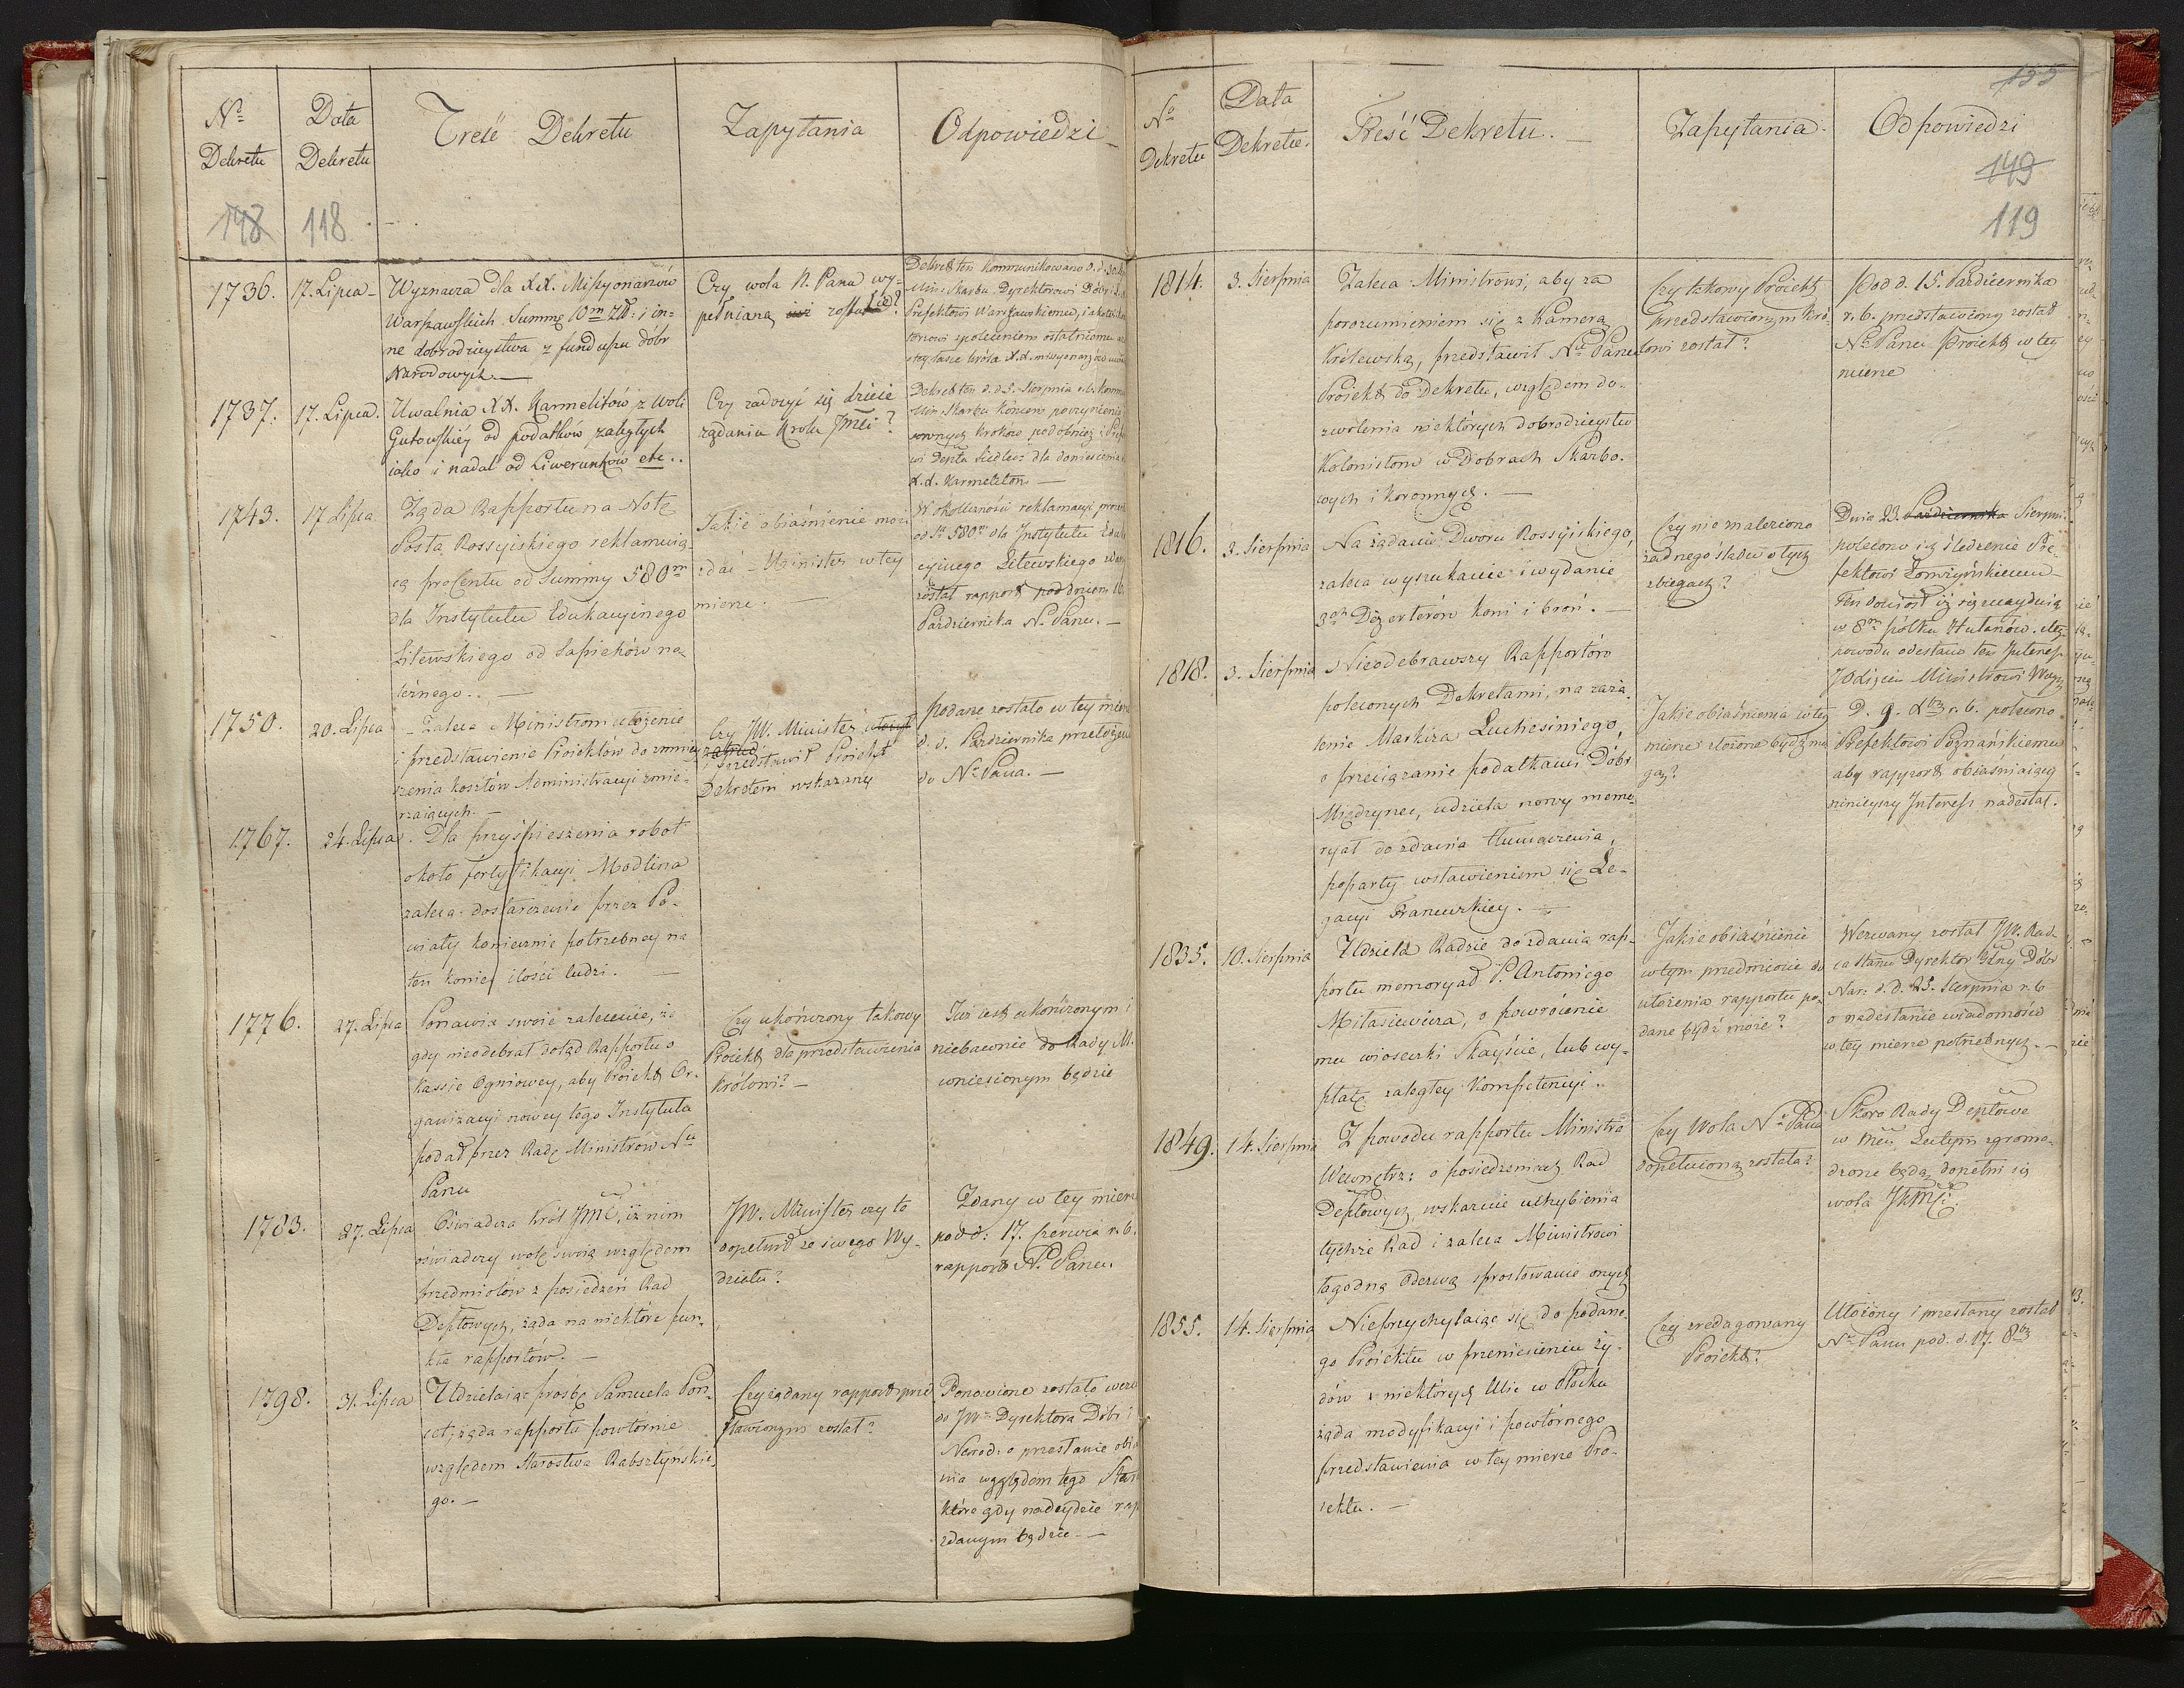 Nº
Dekretu
Data
Dekretu
Treść Dekretu
Zapytania
Odpowiedzi
148
118
1736.
17. Lipca
Wyznacza dla XX. Missyonarzów
Warszawskich Summę 10m Złt: i in-
ne dobrodzieystwa z funduszu dóbr
Narodowych.
Czy wola N. Pana wy-
pełnianą iuż została?
Dekret ten kommunikowano
Min: Skarbu, Dyrektorowi Dóbr
Prefektowi Warszawskiemu,
z poleceniem ostatniemu
1737.
17. Lipca.
Uwalnia XX. Karmelitów z Woli
Gutowskiéy od podatków zaległych
iako i nadal od Liwerunków etc..
Czy zadosyć się dzieie
żądaniu Króla JMci?
Dekret ten d. d. 3. Sierpnia
Min: Skarbu końcem
kroków podobnież i
wi Depta Siedlec: dla doniesienia
X.X. Karmelitom —
1743.
17 Lipca
Żąda Rapportu na Notę
Posła Rossyiskiego reklamuią-
cą procentu od Summy 580m
dla Instytutu Edukacyinego
Litewskiego od Sapiehów na-
leżnego. . —
Jakie obiaśnienie może
zdać Minister w tey
mierze. —
W okoliczności reklamacyi
od Sr 580m dla Instytutu
cyinego Litewskiego
został rapport pod dniem 16
Października Nu Panu. —
1750.
20. Lipca
Zaleca Ministrom ułożenie
i przedstawienie Proiektów do zmniey-
szenia kosztów Administracyi zmie-
rzaiących.
Czy JW. Minister ułożył
i przedstawił Proiekt
Dekretem wskazany
podane zostało w tey mierze
d. d. Października przełożenie
do Nu Pana. —
1767.
24. Lipca.
Dla przyśpieszenia robot
około fortyfikacyi Modlina
zaleca dostarczenie przez Po-
wiaty koniecznie potrzebney na
ten koniec ilości ludzi. —
1776.
27. Lipca
Ponawia swoie zalecenie, że
gdy nieodebrał dotąd Rapportu o
kassie Ogniowey, aby Proiekt Or-
ganizacyi nowey tego Instytutu
podał przez Radę Ministrów Nu
Panu
Czy ukończony takowy
Proiekt dla przedstawienia
Królowi? —
Już iest ukończonym i
niebawnie do Rady M.
wniesionym będzie
1783.
27. Lipca
Oświadcza Król JMć, iż nim
oświadczy wolę swoią względem
przedmiotów z posiedzeń Rad
Deptowych, żąda na niektóre pun-
kta rapportów. —
JW. Minister czy to
dopełnił ze swego Wy-
działu?
Zdany w tey mierze
pod d: 17. Czerwca r.b.
rapport Nu Panu.
1798.
31. Lipca
Udzielaiąc prośbę Samuela Pon-
cet; żąda rapportu powtórnie
względem Starostwa Rabsztyńskie-
go. —
Czy żądany rapport przed-
stawionym został?
Ponowione zostało
do JWo Dyrektora Dóbr i
Narod: o przesłanie
nia względem tego
które gdy nadeydzie
zdanym będzie —
No
Dekretu
Data
Dekretu.
Treść Dekretu. —
Zapytania.
Odpowiedzi
155
149
119
1814.
3. Sierpnia
Zaleca Ministrowi, aby za
porozumieniem się z Kamerą
Królewską, przedstawił Nu Panu
Proiekt do Dekretu, względem do-
zwolenia niektórych dobrodzieystw
Kolonistom w Dobrach Skarbo-
wych i koronnych. —
Czy takowy Proiekt
przedstawionym Kró-
lowi został?
Pod d. 15. Października
r. b. przedstawiony został
Nu Panu Proiekt w tey
mierze
1816.
3. Sierpnia
Na żądanie Dworu Rossyiskiego,
zaleca wyszukanie i wydanie
3ch Dezerterów koni i broń. —
Czy nie znaleziono
żadnego śladu o tych
zbiegach?
Dnia 23. Października Sierpni
polecono ich śledzenie Pre-
fektowi Łomżyńskiemu
Ten doniósł iż się znayduią
w 8m półku Hułanów.
powodu odesłano ten Interess
JO Xięciu Ministrowi Woyny
1818.
3. Sierpnia
Nieodebrawszy Rapportów
poleconych Dekretami, na zaża-
lenie Markiza Luchesiniego,
o przeciążenie podatkami Dóbr
Międzyrzec, udziela nowy memo-
ryał do zdania tłumaczenia,
poparty wstawieniem się Le-
gacyi Francuzkiey. —
Jakie obiaśnienia w tey
mierze złożone bydź mo-
gą?
D. 9. Xbra r. b. polecono
Prefektowi Poznańskiemu
aby rapport obiaśniaiący
ninieyszy Interess nadesłał.
1835.
10. Sierpnia
Udziela Radzie do zdania rap-
portu memoryał P. Antoniego
Milasiewicza, o powrócenie
mu wioseczki Skayście, lub wy-
płatę zaległey Kompetencyi..
Jakie obiaśnienie
w tym przedmiocie do
ułożenia rapportu po-
dane bydź może?
Wezwany został JW. Rad-
ca Stanu Dyrektor Gltny Dóbr
Nar: d. d. 25. Sierpnia r. b
o nadesłanie wiadomości
w tey mierze potrzebnych. —
1849.
14. Sierpnia
Z powodu rapportu Ministra
Wewnętrz: o posiedzeniach Rad
Deptowych, wskazuie uchybienia
tychże Rad i zaleca Ministrowi
łagodną Odezwą sprostowanie onych
Czy Wola Nu Pana
dopełnioną została?
Skoro Rady Deptowe
w mcu Lutym zgroma-
dzone będą, dopełni się
wola JKMci.
1855.
14. Sierpnia
Nieprzychylaiąc się do podane-
go Proiektu w przeniesieniu Ży-
dów z niektórych Ulic w Płocku
żąda modyfikacyi i powtórnego
przedstawienia w tey mierze Pro-
iektu. —
Czy zredagowany
Proiekt?
Ułożony i przesłany został
Nu Panu pod. d. 17. 8bra